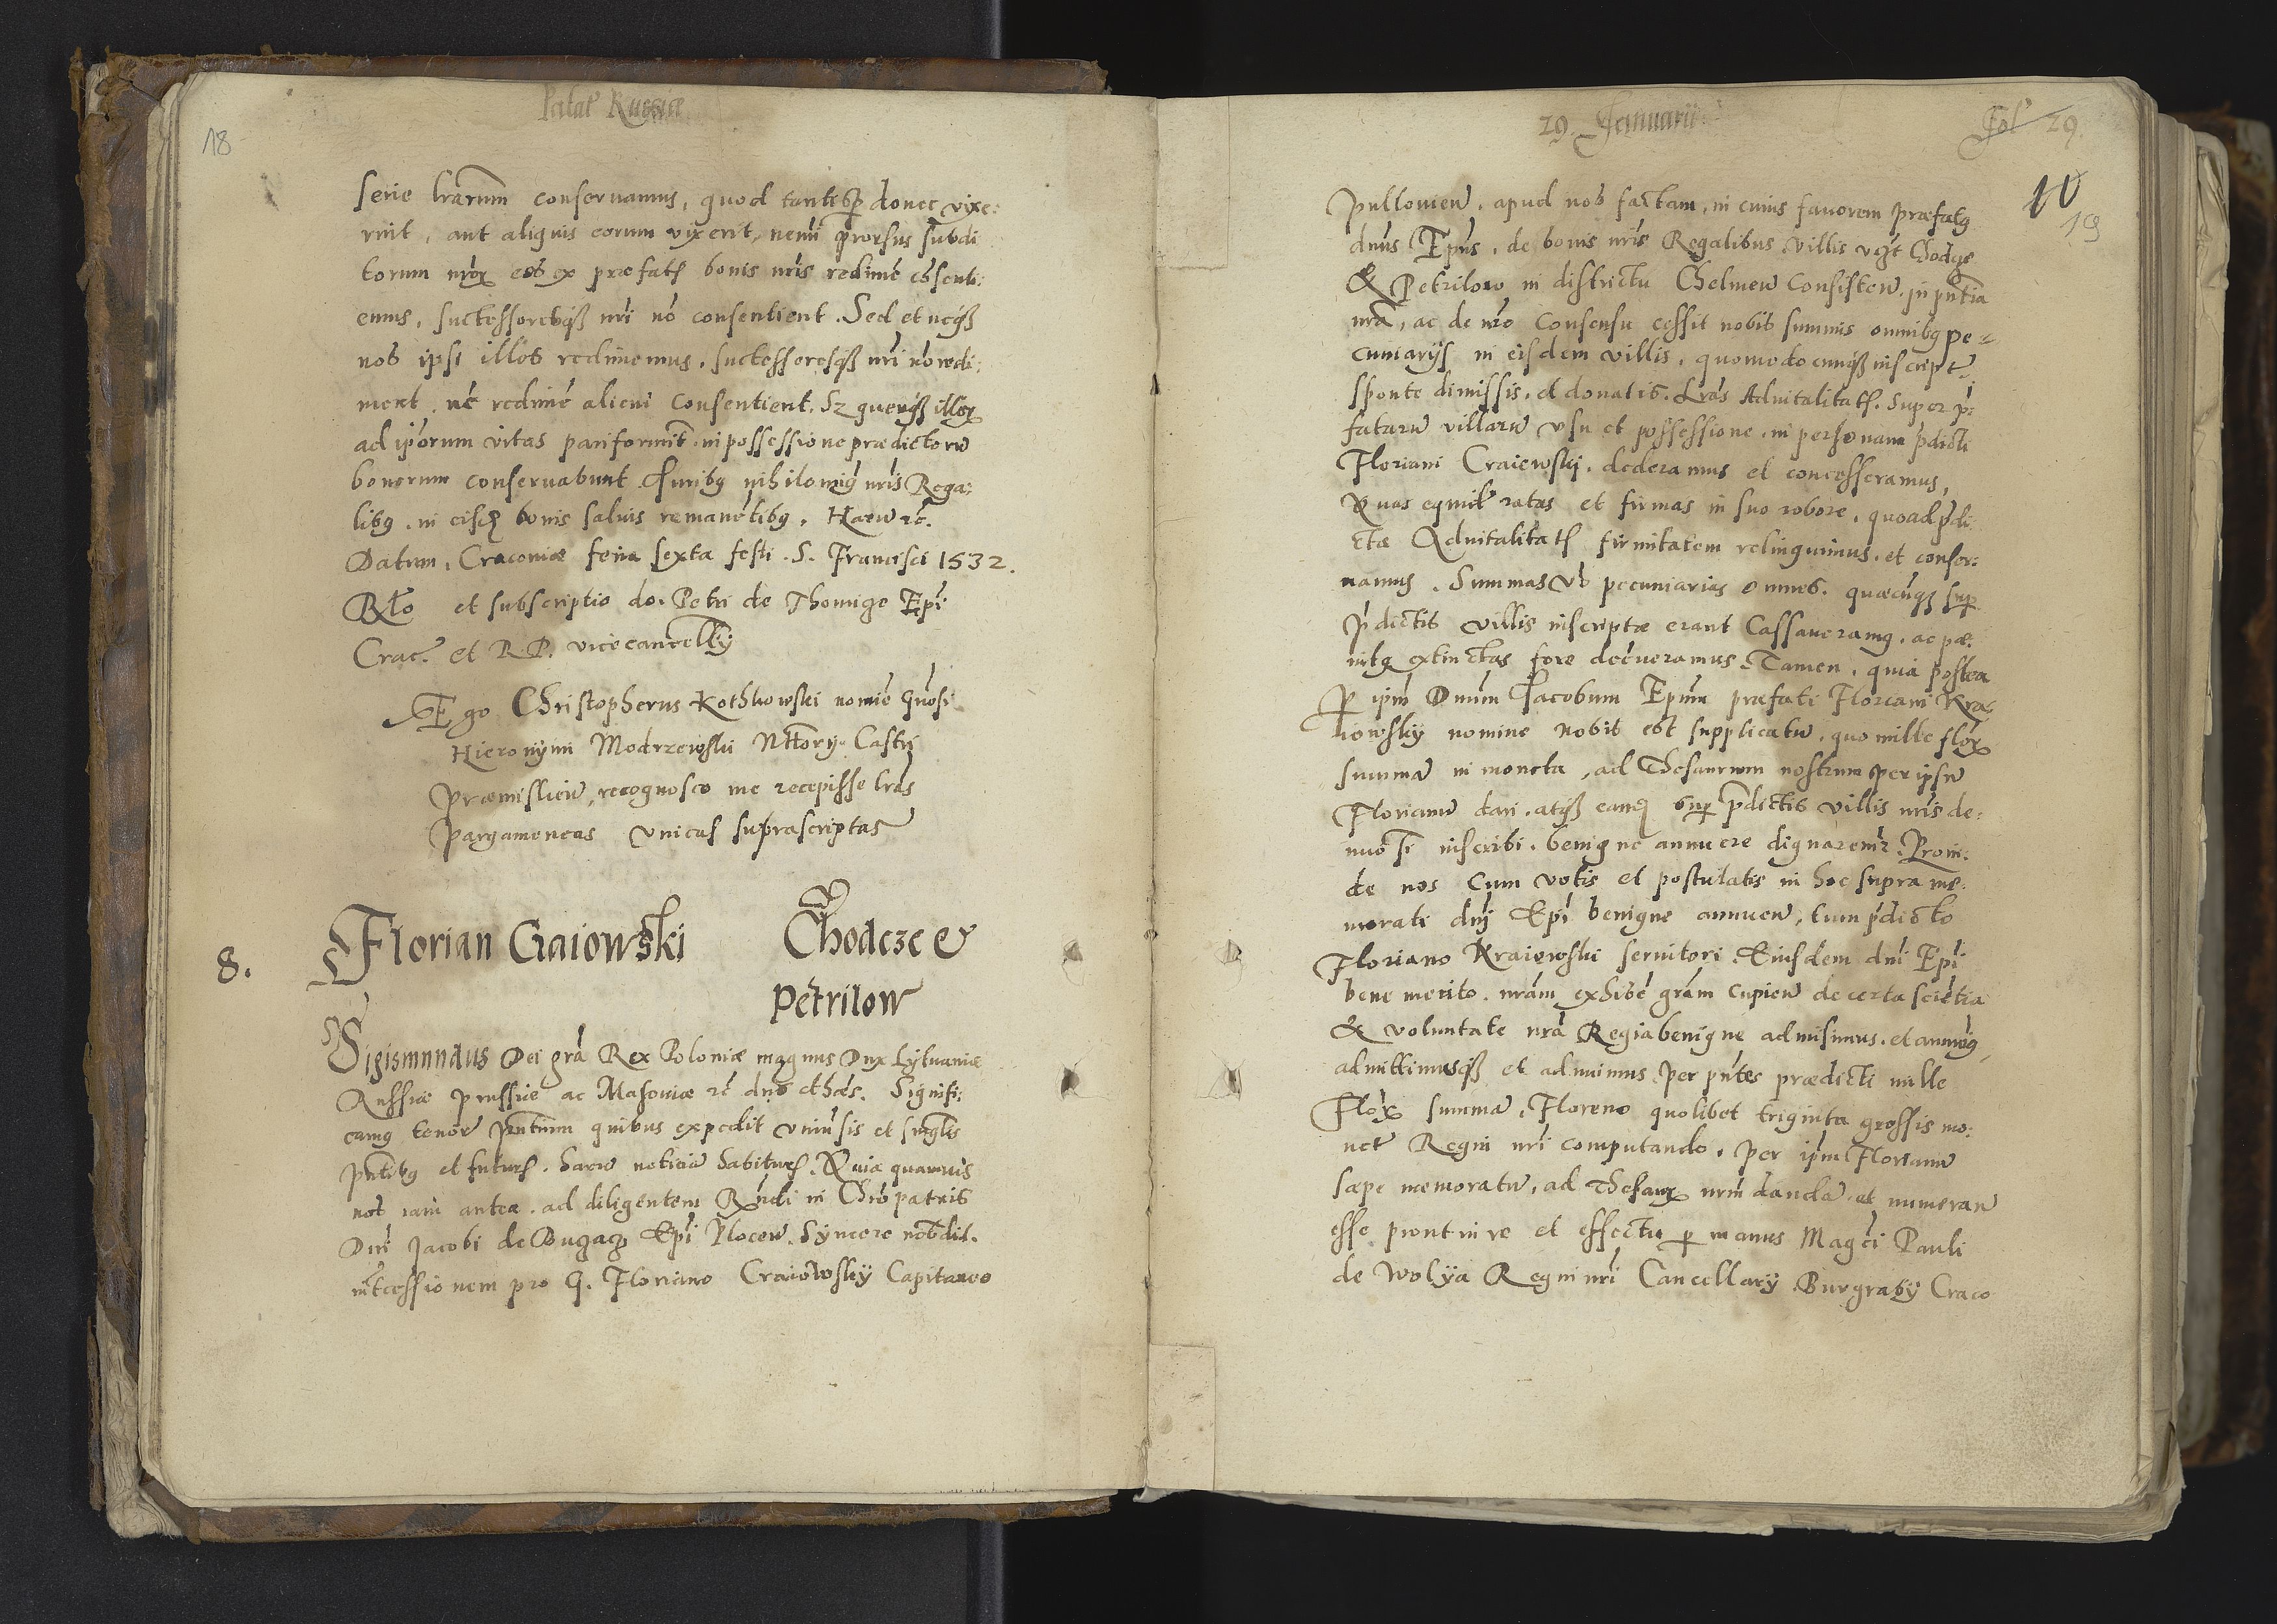 Palat Russiæ
18
serie lrarum conseruamus, quod tantisp donec vixe:
rint, aut aliquis eorum vixerit, nemi prorsus subdi
torum nror eos ex præfatis bonis nris redime cōsenti:
emus, successoresq nri nō consentient. Sed et neq
nos ipsi illos redimemus, successoresq nri nō redi:
ment, nc redime alicui consentient. Sz quemq illor
ad ipsorum vitas pariformit in possessione prædictoru
bonorum conseruabunt. Iuribq nihilomiq nris Rega:
libq. in eisd bonis saluis remanetibq. Haru zc.
Datum, Cracouiæ feria sexta festi. S. Francisci 1532.
Rlo et subscriptio do. Petri de Thomige Epi
Crac. et R. P. vicecancelly
Ego Christopherus Kothkowski nomie Gnosi
Hieronymi Modrzewski Nttory Castri
Præmislien, recognosco me recepisse lras
Pargameneas vnicas suprascriptas
8. Florian Gaiowski Chodcze &
Petrilow
Sigismundus Dei gra Rex Poloniæ magnus Dux Lytuaniæ
Russiæ prussiæ ac Masouiæ zc dns et hæs. Signifi:
camq tenore pntium quibus expedit vniusis et singlis
pntibq et futuris. haru noticia habituris. Quia quamuis
nos iam antea. ad diligentem Rndi in Chro patris
Dni Jacobi de Bugacz Epi Plocen. Syncere nob dil.
intcessionem pro G. Floriano Craiowsky Capitaneo
29 Januarii
Fol 29.
10
19
Pultouien. apud nos factam, in cuius fauorem præfatq
dnus Epus. de bonis nris Regalibus villis vzt Chodcze
& Petrilow in districtu Chelmen consisten. in pntia
nra, ac de nro consensu cessit nobis summis omnibq pe
cuniarijs in eisdem villis. quomodocunq inscript
sponte dimissis. et donatis. Lras Aduitalitatis. super p
fataru villaru vsu et possessione. in personam pdicti
Floriani Craiewski. dederamus et concesseramus,
Quas eqmit ratas et firmas in suo robore, quoad pdi
ctæ Aduitalitatis firmitatem relinquimus. et conser:
uamus. Summas vo pecuniarias omnes. quæcuq sup
pdictis villis inscriptæ erant Cassaueramq. ac pæ:
nitq extinctas fore decreueramus. Tamen, quia postea
p ipm Dnum Jacobum Epum præfati Floriani Kra:
iowsky nomine nobis est supplicatu, quo mille flor
summa in moneta, ad Thesaurum nostrum per ipsu
Florianu dari. atq eand sup pdictis villis nris de:
nuo si inscribi. benigne annuere dignaremr. Proin:
de nos cum votis et postulatis in hoc supra me:
morati dnj Epi benigne annuen, tum pdicto
Floriano Kraiewski seruitori Eiusdem dni Epi
bene merito. nram exhibe gram cupien de certa scietia
& voluntate nra Regia benigne admisimus. et annuiq
admittimusq et adnuimus per pntes prædicti mille
Flor summa, Floreno quolibet triginta grossis mo:
net Regni nri computando, per ipm Florianu
sæpe memoratu, ad Thesaur nrm danda et numeran
esse prout in re et effectu p manus Magci Pauli
de Wolya Regni nri Cancellary Burgraby Craco